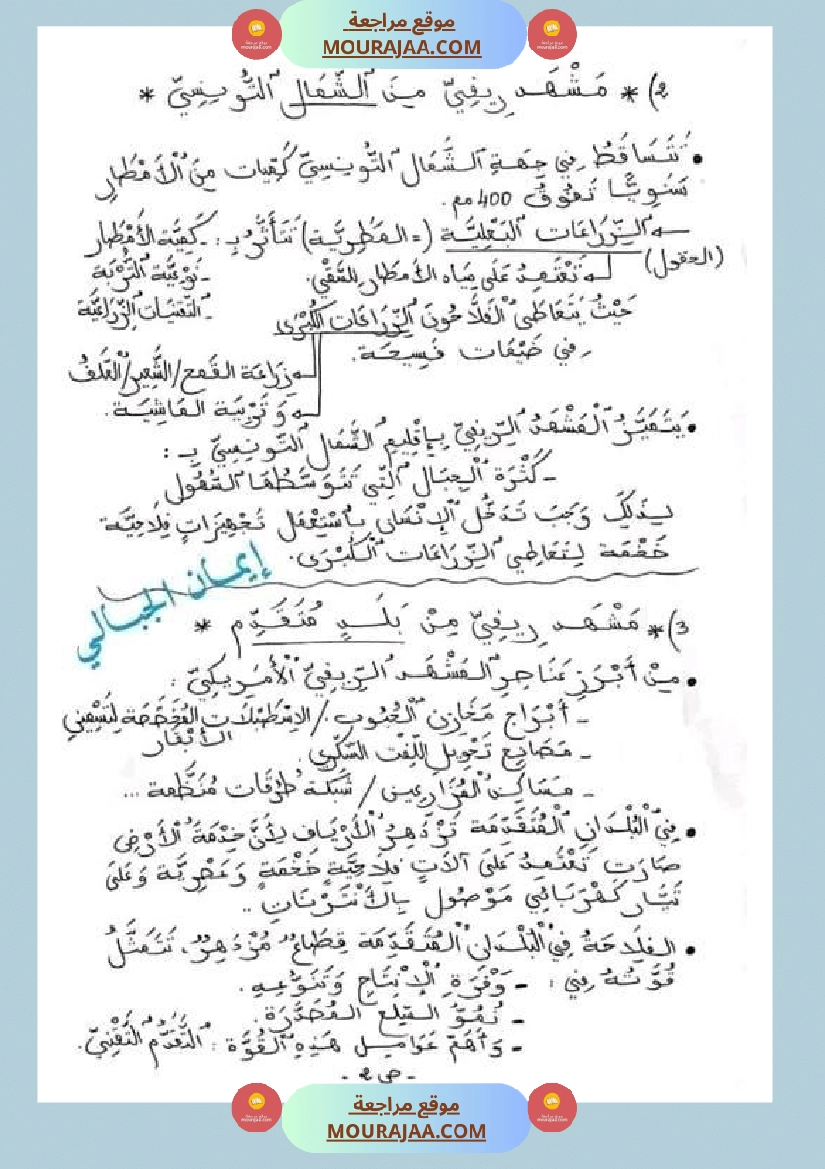 موقع مراجعة
MOURAJAA.COM
2) * مَشْهَد رِيفِيّ مِنَ الشَّمَالِ التُّونِسِيّ *
• تَتَسَاقَطُ فِي جِهَةِ الشَّمَالِ التُّونِسِيِّ كَمِّيَات مِنَ الْأَمْطَارِ
سَنَوِيًّا تَفُوقُ 400 مم.
الزِّرَاعَات البَعْلِيَّة (= المَطَرِيَّة) تَتَأَثَّرُ بِـ : - كَمِّيَّة الأَمْطَار
(الحقول)
تَعْتَمِدُ عَلَى مِيَاه الأمطَارِ لِلسَّقْيِ. - نَوْعِيَّة التُّرْبَة
حَيْثُ يَتَعَاطَى الْفَلَّاحُونَ الزِّرَاعَات الكُبْرَى - التقنيات الزِّرَاعِيَّة
فِي ضَيْعَات فَسِيحَة.
زِرَاعَة القَمح/الشَّعِير/العَلَفُ
وَ تَرْبِيَة المَاشِيَة.
• يَتَمَيَّزُ الْمَشْهَدُ الرِّيفِيّ بِإِقْلِيمِ الشَّمَال التُّونِسِيّ بِـ :
- كَثْرَة الْجِبَال الَّتِي تَتَوَسَّطُهَا السُّهُول
لِـذَلِكَ وَجَبَ تَدَخُّل الإِنْسَان بِاسْتِعْمَال تَجْهِيزَاتٍ فِلَاحِيَّة
ضَخْمَة لِتَعَاطِي الزِّرَاعَات الكُبْرَى.
إيمان الجبالي
3) * مَشْهَد رِيفِيّ مِنْ بَلَدٍ مُتَقَدِّم *
• مِنْ أَبْرَزِ عَنَاصِرِ المَشْهَد الرِّيفِيّ الْأَمْرِيكِيّ :
- أَبْرَاج مَخَازِن الْحُبُوب / الإِسْطَبْلَات المُخَصَّصَة لِتَسْمِينِ
الأَبْقَار
- مَصَانِع تَحْوِيلِ اللِّفْت السُّكَّرِي.
- مَسَاكِن المُزَارِعِين / شَبَكَة طُرُقَات مُنَظَّمة ...
• فِي الْبُلْدَانِ الْمُتَقَدِّمَة تَزْدَهِرُ الْأَرْيَاف لِأَنَّ خِدْمَةَ الْأَرْضِ
صَارَت تَعْتَمِدُ عَلَى آلَاتٍ فِلَاحِيَّة ضَخْمَةٍ وَ عَصْرِيَّة وَ عَلَى
تَيَّار كَهْرَبَائِي مَوْصُول بِالأَنْتَرْنَات ..
• الفِلَاحَةُ فِي الْبُلْدَانِ الْمُتَقَدِّمَة قِطَاعٌ مُزْدَهِرٌ، تَتَمَثَّلُ
قُوَّتُهُ فِي : - وَفْرَةِ الْإِنْتَاجِ وَتَنَوُّعِـهِ.
- نُمُوّ السِّلَعِ المُصَدَّرَة.
- وَأَهَمّ عَوَامِـل هَذِهِ القُوَّة : التَّقَدُّم التِّقْنِيّ.
- ص 2 -
موقع مراجعة
MOURAJAA.COM